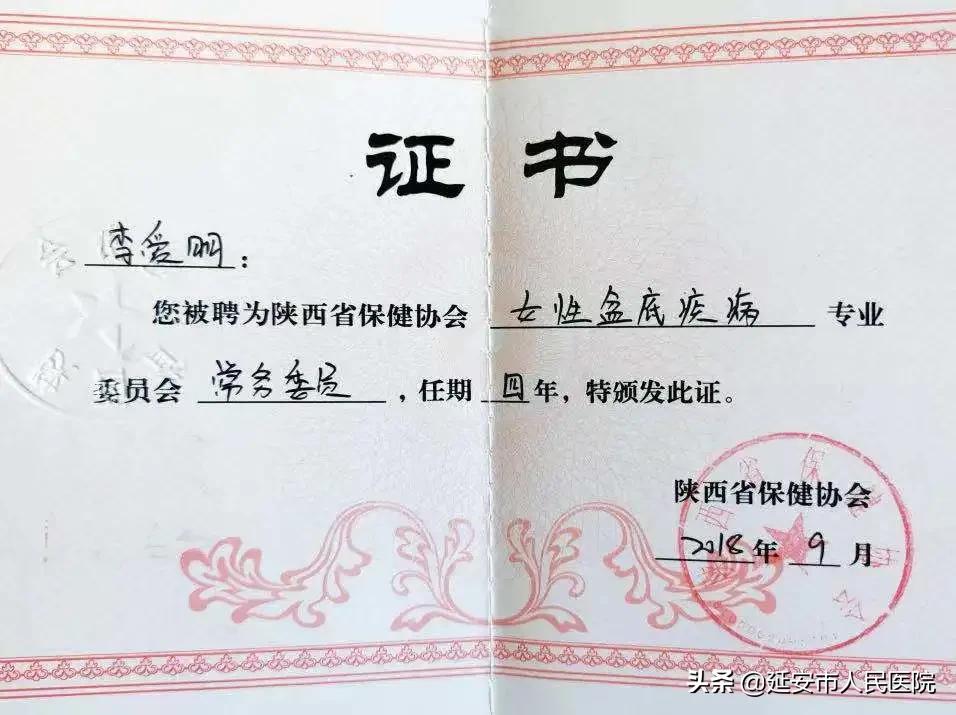 证书
李爱明：
您被聘为陕西省保健协会 女性盆底疾病 专业
委员会 常务委员，任期四年，特颁发此证。
陕西省保健协会
2018年9月
头条 @延安市人民医院